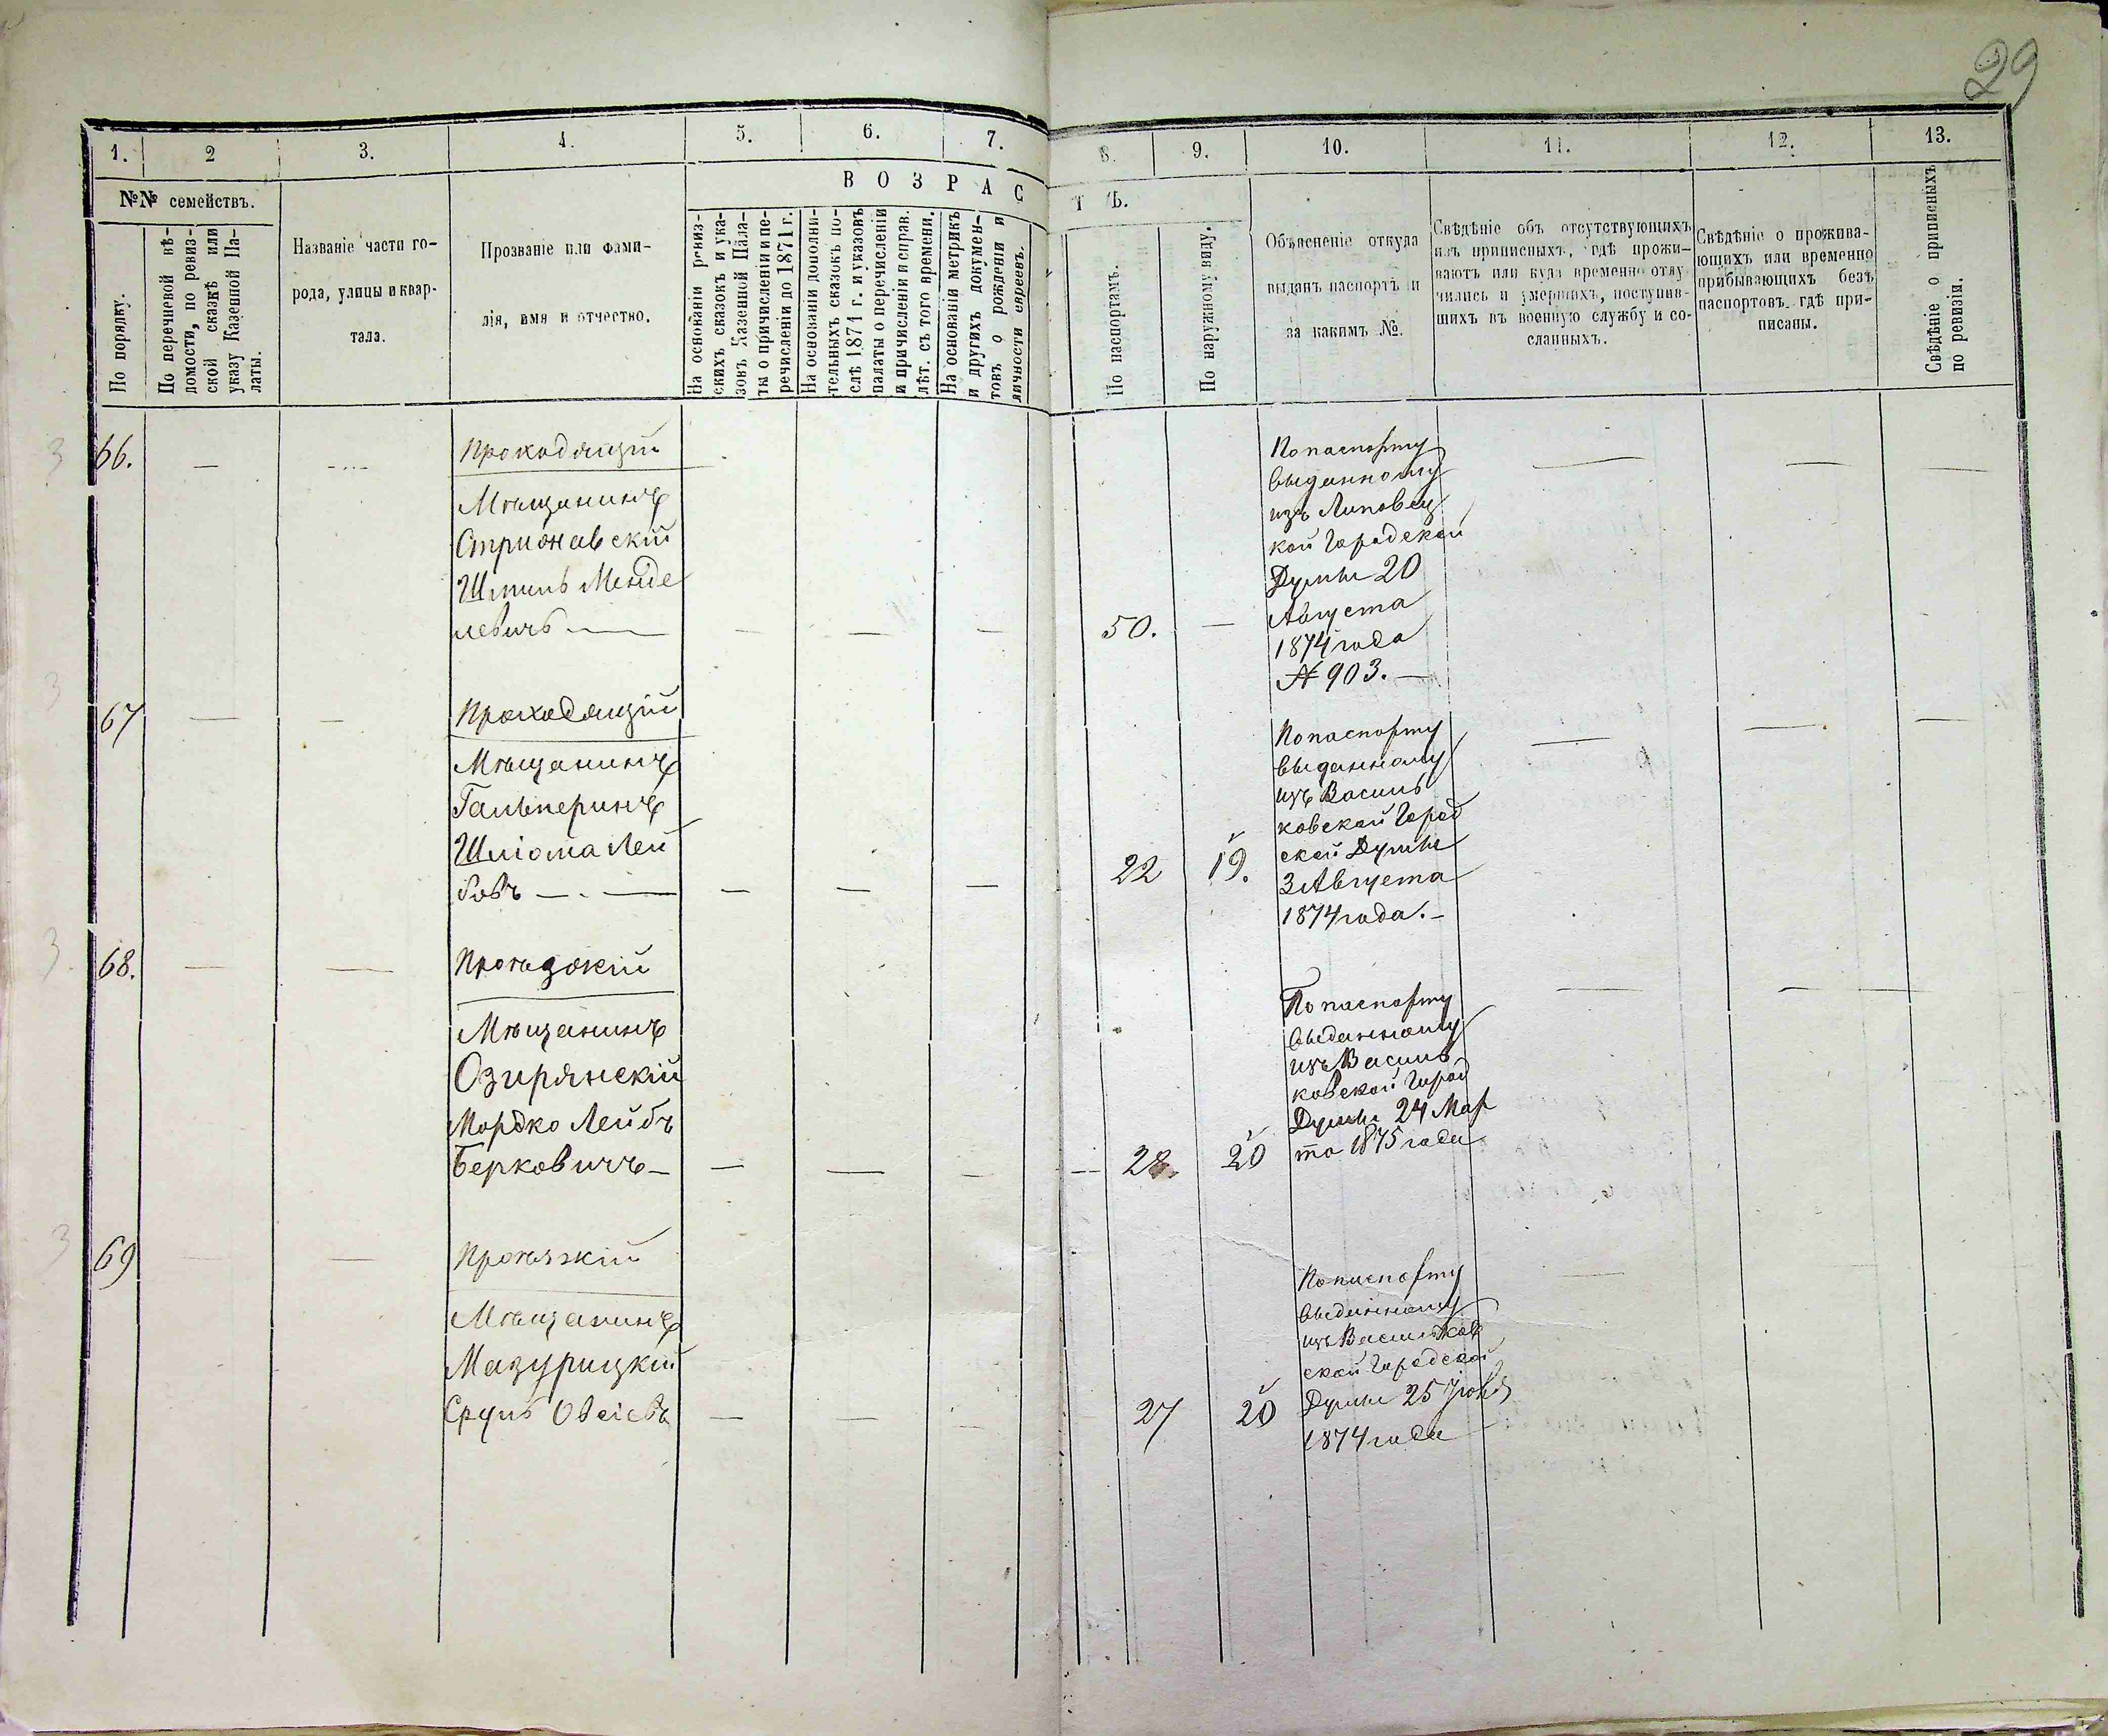 29
1. 2 3. 4. 5. 6. 7. 8. 9. 10. 11. 12. 13.
№№ семействъ.
По порядку.
По перечневой вѣ-
домости, по ревиз-
ской сказкѣ или
указу Казенной Па-
латы.
Названіе части го-
рода, улицы и квар-
тала.
Прозваніе или фами-
лія, имя и отчество.
ВОЗРАСТѢ.
На основаніи ревиз-
скихъ сказокъ и ука-
зовъ Казенной Пала-
ты о причисленіи и пе-
речисленіи до 1871 г.
На основаніи дополни-
тельныхъ сказокъ по-
слѣ 1871 г. и указовъ
палаты о перечисленіи
и причисленіи и справ.
лѣт. съ того времени.
На основаніи метрикъ
и другихъ докумен-
товъ о рожденіи и
личности евреевъ.
По паспортамъ.
По наружному виду.
Объясненіе откуда
выданъ паспортъ и
за какимъ №.
Свѣдѣніе объ отсутствующихъ
изъ приписныхъ, гдѣ прожи-
ваютъ или куда временно отлу-
чились и умершихъ, поступив-
шихъ въ военную службу и со-
сланныхъ.
Свѣдѣніе о прожива-
ющихъ или временно
прибывающихъ безъ
паспортовъ гдѣ при-
писаны.
Свѣдѣніе о приписныхъ
по ревизіи.
3 66. — — Проходящій
Мѣщанинъ
Стрижавскій
Шмиль Менде
левичъ — — — — 50. —
По паспорту
выданному
изъ Липовец
кой Городской
Думы 20
Августа
1874 года
№ 903. —
3 67 — — Проходящій
Мѣщанинъ
Гальперинъ
Шліома Лей
бовъ — — — — 22 19.
По паспорту
выданному
изъ Василь
ковской Город
ской Думы
3 Августа
1874 года. —
3 68. — — Проѣзжій
Мѣщанинъ
Озирянскій
Мордко Лейбъ
Берковичъ — — — — 28. 20
По паспорту
выданному
изъ Василь
ковской Город
Думы 24 Мар
та 1875 года
3 69 — — Проѣзжій
Мѣщанинъ
Мазурицкій
Сруль Овсіевъ — — — 27 20
По паспорту
выданному
изъ Васильков
ской Городской
Думы 25
1874 года